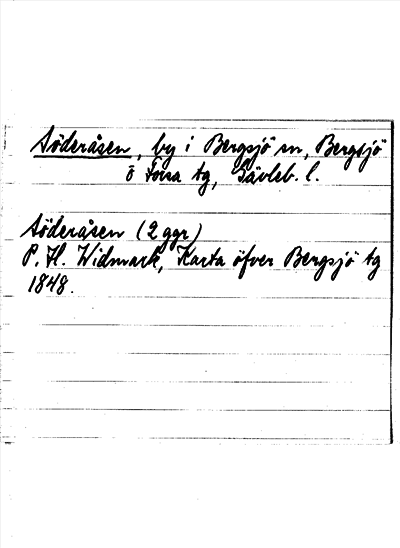 Söderåsen, by i Bergsjö sn, Bergsjö
o Forsa tg, Gävleb. l.
Söderåsen (2 ggr)
P. H. Widmark, Karta öfver Bergsjö tg
1848.